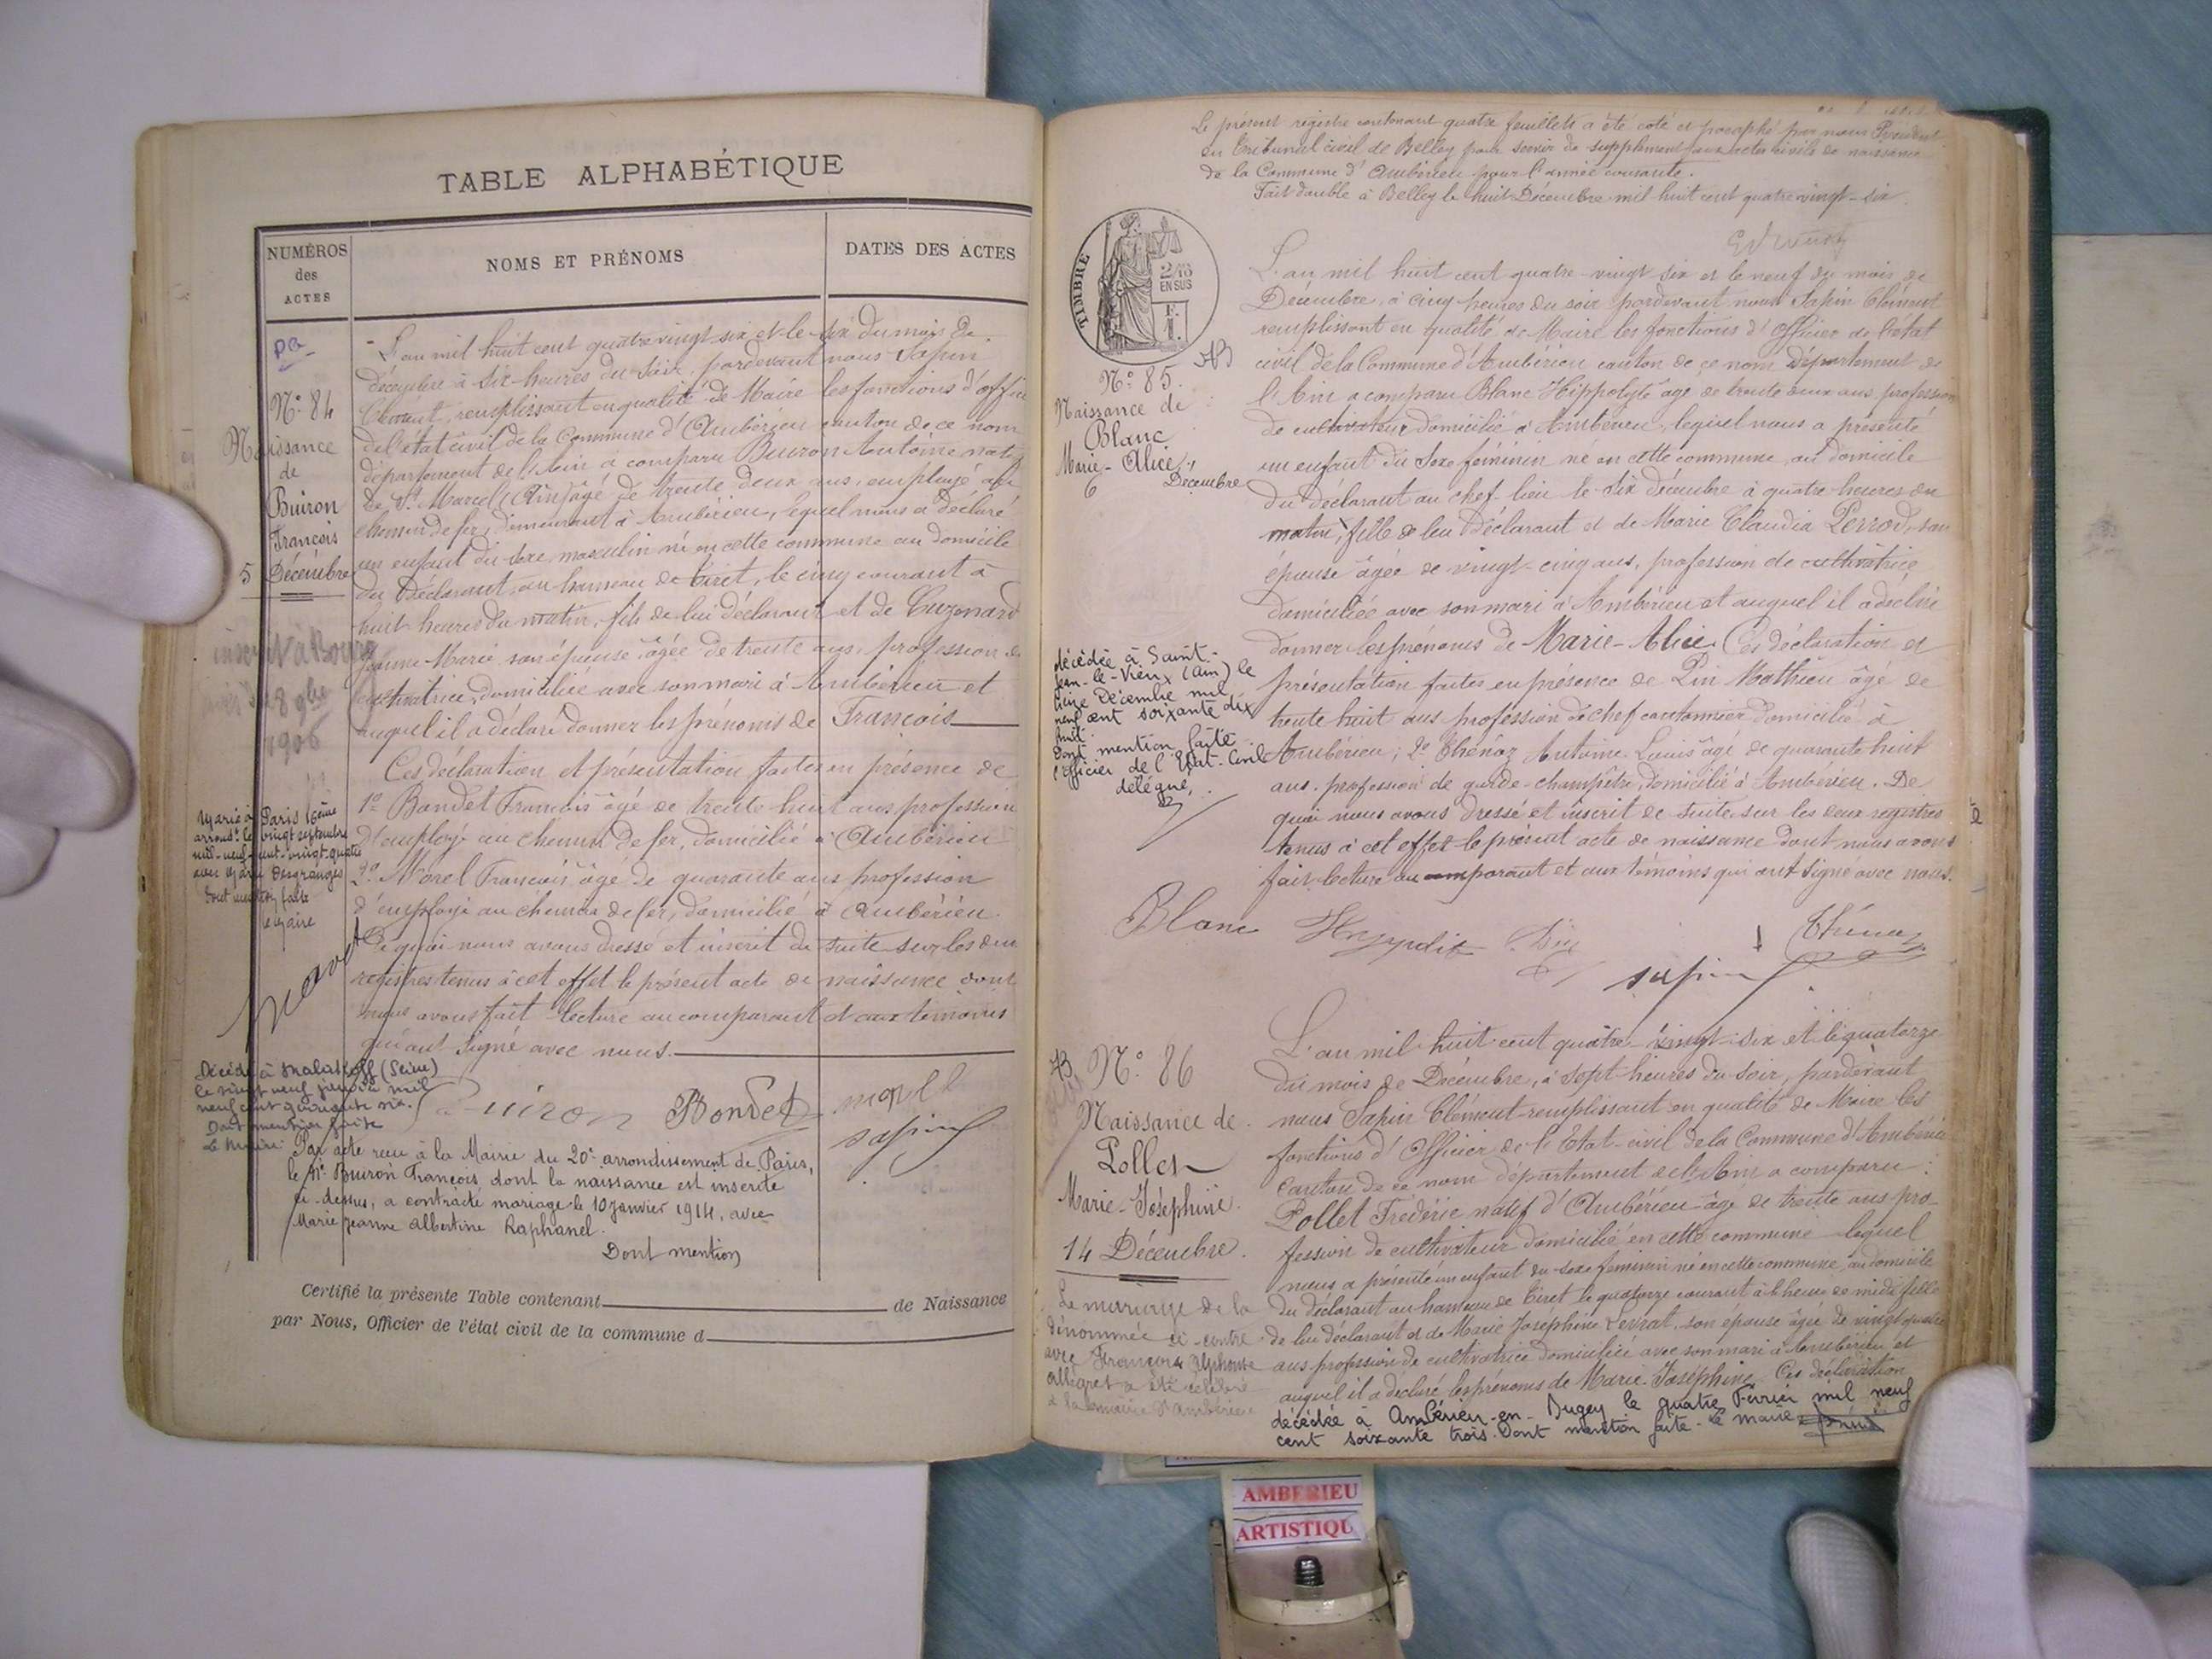 TABLE ALPHABÉTIQUE
NUMÉROS
des
ACTES
NOMS ET PRÉNOMS
DATES DES ACTES
N° 84
Naissance
de
Buiron
François
5 Décembre
L'an mil huit cent quatre vingt six et le six du mois de
décembre à six heures du soir, pardevant nous Sapin
Clément, remplissant en qualité de Maire les fonctions d'officier
de l'état civil de la Commune d'Ambérieu canton de ce nom
département de l'Ain a comparu Buiron Antoine natif
de St Marcel (Ain) âgé de trente deux ans, employé au
chemin de fer, demeurant à Ambérieu, lequel nous a déclaré
un enfant du sexe masculin né en cette commune au domicile
du Déclarant, au hameau de Tiret, le cinq courant à
huit heures du matin, fils de lui déclarant et de Cuzenard
Jeanne Marie son épouse âgée de trente ans, profession de
cultivatrice, domiciliée avec son mari à Ambérieu et
auquel il a déclaré donner les prénoms de François
Ces déclaration et présentation faites en présence de
1° Bondet François âgé de trente huit ans profession
d'employé au chemin de fer, domicilié à Ambérieu
2° Morel François âgé de quarante ans profession
d'employé au chemin de fer, domicilié à Ambérieu.
De quoi nous avons dressé et inscrit de suite sur les deux
registres tenus à cet effet le présent acte de naissance dont
nous avons fait lecture au comparant et aux témoins
qui ont signé avec nous.
Buiron Bondet Morel
Sapin
1906
Marié à Paris 16ème
arrondt le vingt septembre
mil-neuf-cent-vingt-quatre
avec Marie Desgranges
Dont mention faite
le Maire
Décédé à Malakoff (Seine)
le vingt neuf janvier mil
neuf cent quarante six.
Dont mention faite
Le Maire:
Par acte reçu à la Mairie du 20e arrondissement de Paris,
le Mr Buiron François dont la naissance est inscrite
ci-dessus, a contracté mariage le 10 janvier 1914, avec
Marie Jeanne Albertine Raphanel.
Dont mention
Certifié la présente Table contenant de Naissance
par Nous, Officier de l'état civil de la commune d
Le présent registre contenant quatre feuillets a été coté et paraphé par nous Président
du Tribunal civil de Belley pour servir de supplément aux actes civils de naissance
de la Commune d'Ambérieu pour l'année courante.
Fait double à Belley le huit Décembre mil huit cent quatre vingt-six
TIMBRE
2/10
EN SUS
F.
1.
N° 85.
Naissance de
Blanc
Marie-Alice,
6 Décembre
L'an mil huit cent quatre-vingt six et le neuf du mois de
Décembre, à cinq heures du soir pardevant nous Sapin Clément
remplissant en qualité de Maire les fonctions d'officier de l'état
civil de la Commune d'Ambérieu canton de ce nom Département de
l'Ain a comparu Blanc Hippolyte âgé de trente deux ans, profession
de cultivateur domicilié à Ambérieu, lequel nous a présenté
un enfant du sexe féminin né en cette commune au domicile
du déclarant au chef lieu le six décembre à quatre heures du
matin, fille de lui Déclarant et de Marie Claudia Perrod, son
épouse âgée de vingt-cinq ans, profession de cultivatrice,
domiciliée avec son mari à Ambérieu et auquel il a déclaré
donner les prénoms de Marie-Alice. Ces déclaration et
présentation faites en présence de Pin Mathieu âgé de
trente huit ans profession de chef cantonnier domicilié à
Ambérieu; 2° Thénoz Antoine Louis âgé de quarante huit
ans, profession de garde-champêtre, domicilié à Ambérieu. De
quoi nous avons dressé et inscrit de suite sur les deux registres
tenus à cet effet le présent acte de naissance dont nous avons
fait lecture au comparant et aux témoins qui ont signé avec nous.
Blanc Hippolite Pin Thénoz
Sapin
décédée à Saint-
Jean-le-Vieux (Ain) le
seize Décembre mil
neuf cent soixante dix
huit.
Dont mention faite
l'Officier de l'Etat-Civil
délégué,
N° 86
Naissance de
Pollet
Marie-Joséphine.
14 Décembre.
L'an mil huit cent quatre-vingt-six et le quatorze
du mois de Décembre, à sept heures du soir, pardevant
nous Sapin Clément remplissant en qualité de Maire les
fonctions d'Officier de l'Etat-civil de la Commune d'Ambérieu
canton de ce nom département de l'Ain a comparu:
Pollet Frédéric natif d'Ambérieu âgé de trente ans pro-
fession de cultivateur domicilié en cette commune lequel
nous a présenté un enfant du sexe féminin né en cette commune, au domicile
du déclarant au hameau de Tiret le quatorze courant à heure de midi fille
de lui déclarant et de Marie Joséphine Levrat, son épouse âgée de vingt quatre
ans profession de cultivatrice domiciliée avec son mari à Ambérieu et
auquel il a déclaré les prénoms de Marie-Joséphine. Ces déclaration
Le mariage de la
dénommée ci-contre
avec François Alphonse
Allégret a été célébré
à la mairie d'Ambérieu
décédée à Ambérieu-en-Bugey le quatre Février mil neuf
cent soixante trois. Dont mention faite - le maire
AMBERIEU
ARTISTIQU